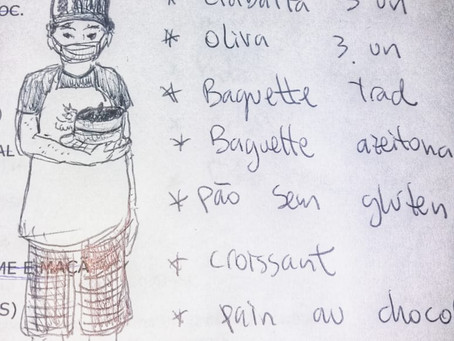 ciabatta 3 un
* oliva 3. un
* Baguette trad
* Baguette azeitona
* pão sem glúten
* croissant
* pain au choco
ƏC.
)
AL
ME E MAÇÃ
S)